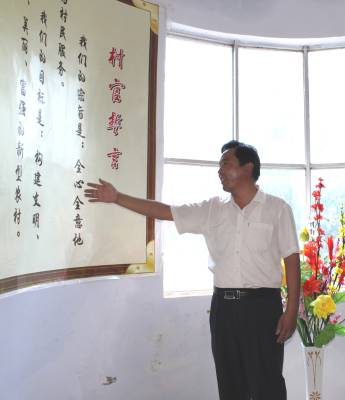 村官誓言
我们的宗旨是：全心全意地
为村民服务。
我们的目标是：构建文明、
、美丽、富强的新型农村。